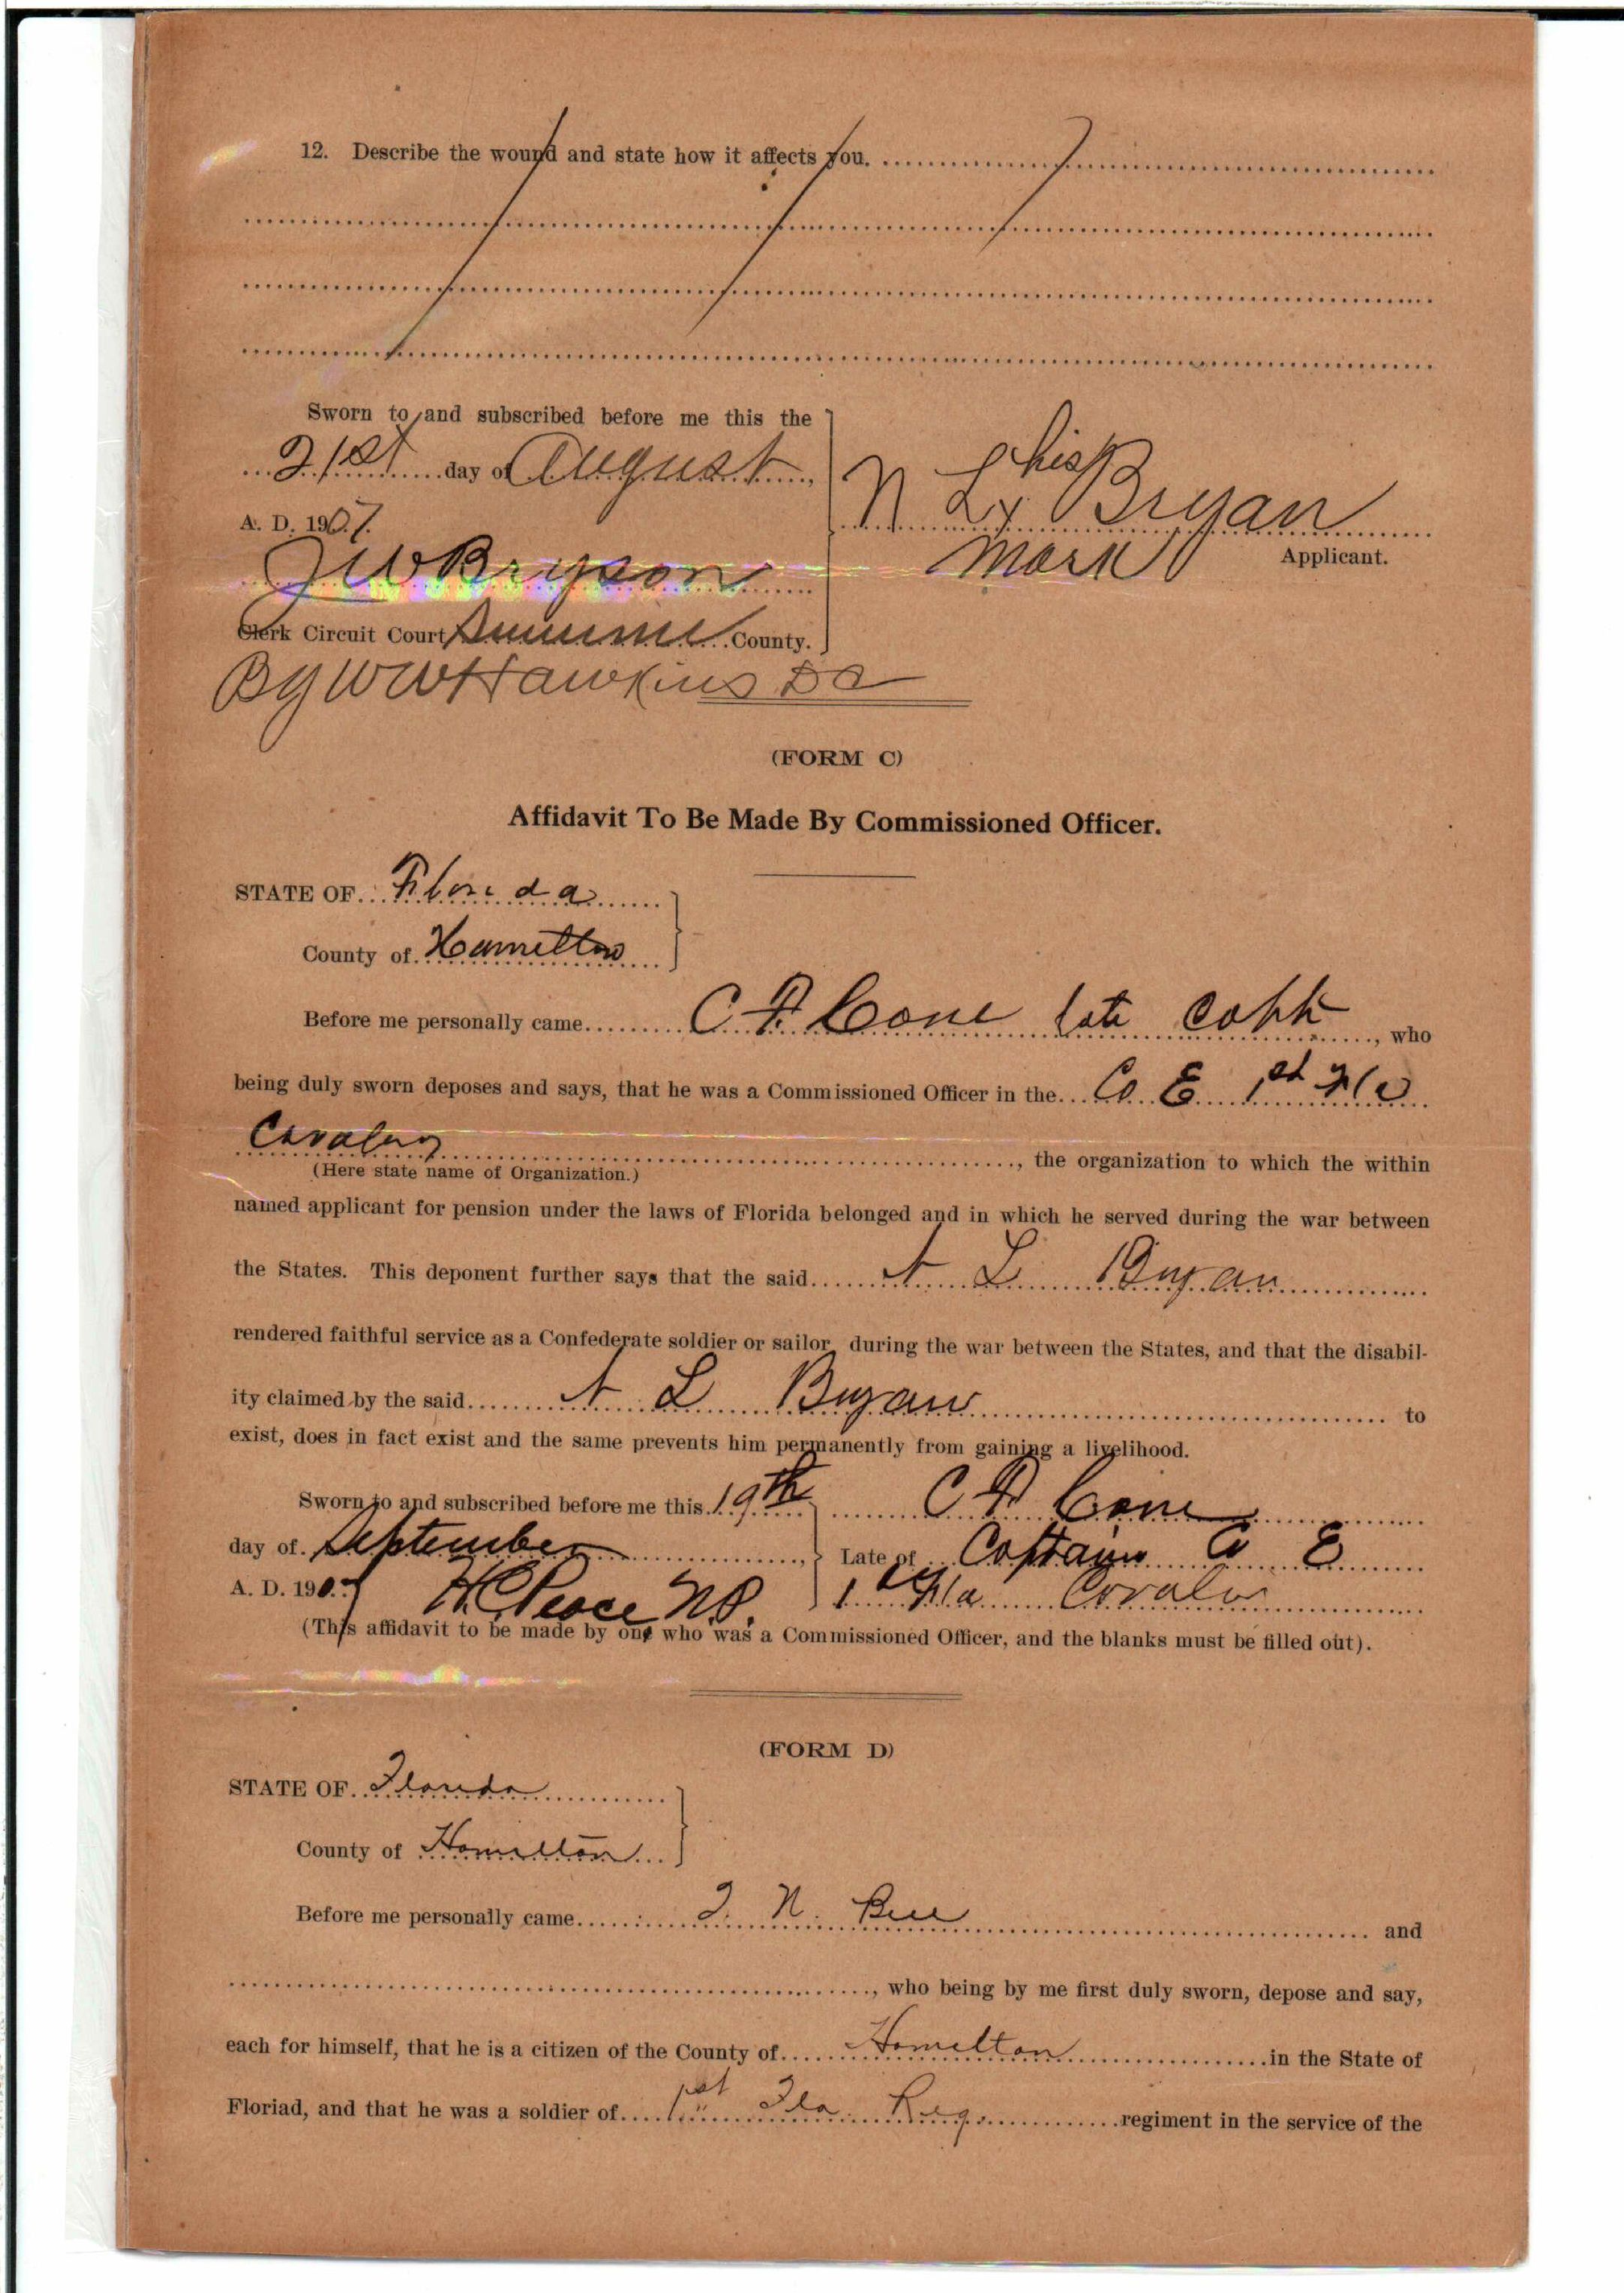 12. Describe the wound and state how it affects you.
Sworn to and subscribed before me this the
21st day of August,
A. D. 1907.
his
N L x Bryan
mark
Applicant.
J W Bryson
Clerk Circuit Court Suwannee County.
By W W Hawkins D C
(FORM C)
Affidavit To Be Made By Commissioned Officer.
STATE OF Florida
County of Hamilton
Before me personally came C F Cone late Capt, who
being duly sworn deposes and says, that he was a Commissioned Officer in the Co. E 1st Fla
Cavalry, the organization to which the within
(Here state name of Organization.)
named applicant for pension under the laws of Florida belonged and in which he served during the war between
the States. This deponent further says that the said N L Bryan
rendered faithful service as a Confederate soldier or sailor during the war between the States, and that the disabil-
ity claimed by the said N L Bryan to
exist, does in fact exist and the same prevents him permanently from gaining a livelihood.
Sworn to and subscribed before me this 19th C F Cone
day of September, Late of Captain Co E
A. D. 1907 H. C. Peace N.P. 1st Fla Cavalry
(This affidavit to be made by one who was a Commissioned Officer, and the blanks must be filled out).
(FORM D)
STATE OF Florida
County of Hamilton
Before me personally came N. and
, who being by me first duly sworn, depose and say,
each for himself, that he is a citizen of the County of Hamilton in the State of
Floriad, and that he was a soldier of 1st Fla Reg. regiment in the service of the